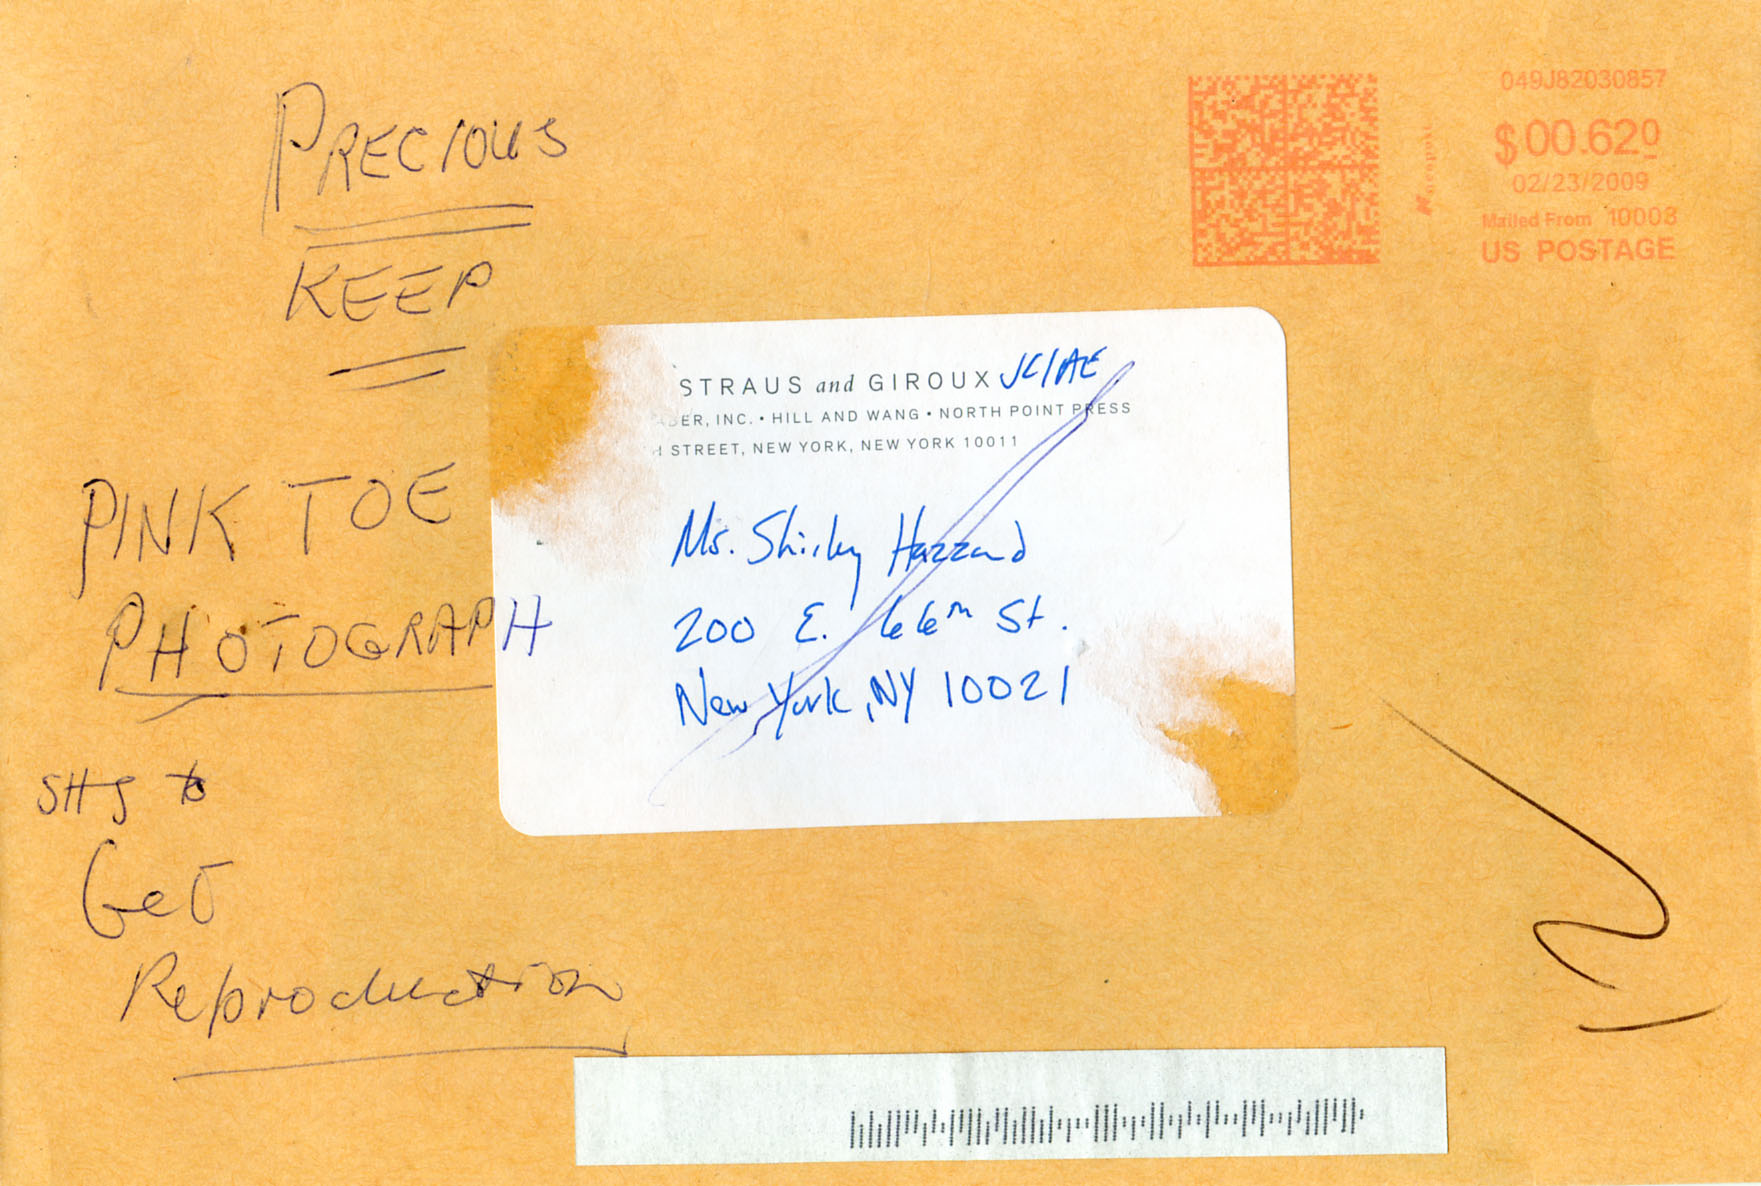 PRECIOUS
KEEP
PINK TOE
PHOTOGRAPH
SHS to
Get
Reproduction
049J82030857
$00.620
02/23/2009
Mailed From 10003
US POSTAGE
STRAUS and GIROUX JC/AE
BER, INC. • HILL AND WANG • NORTH POINT PRESS
H STREET, NEW YORK, NEW YORK 10011
Ms. Shirley Hazzard
200 E. 66th St.
New York, NY 10021